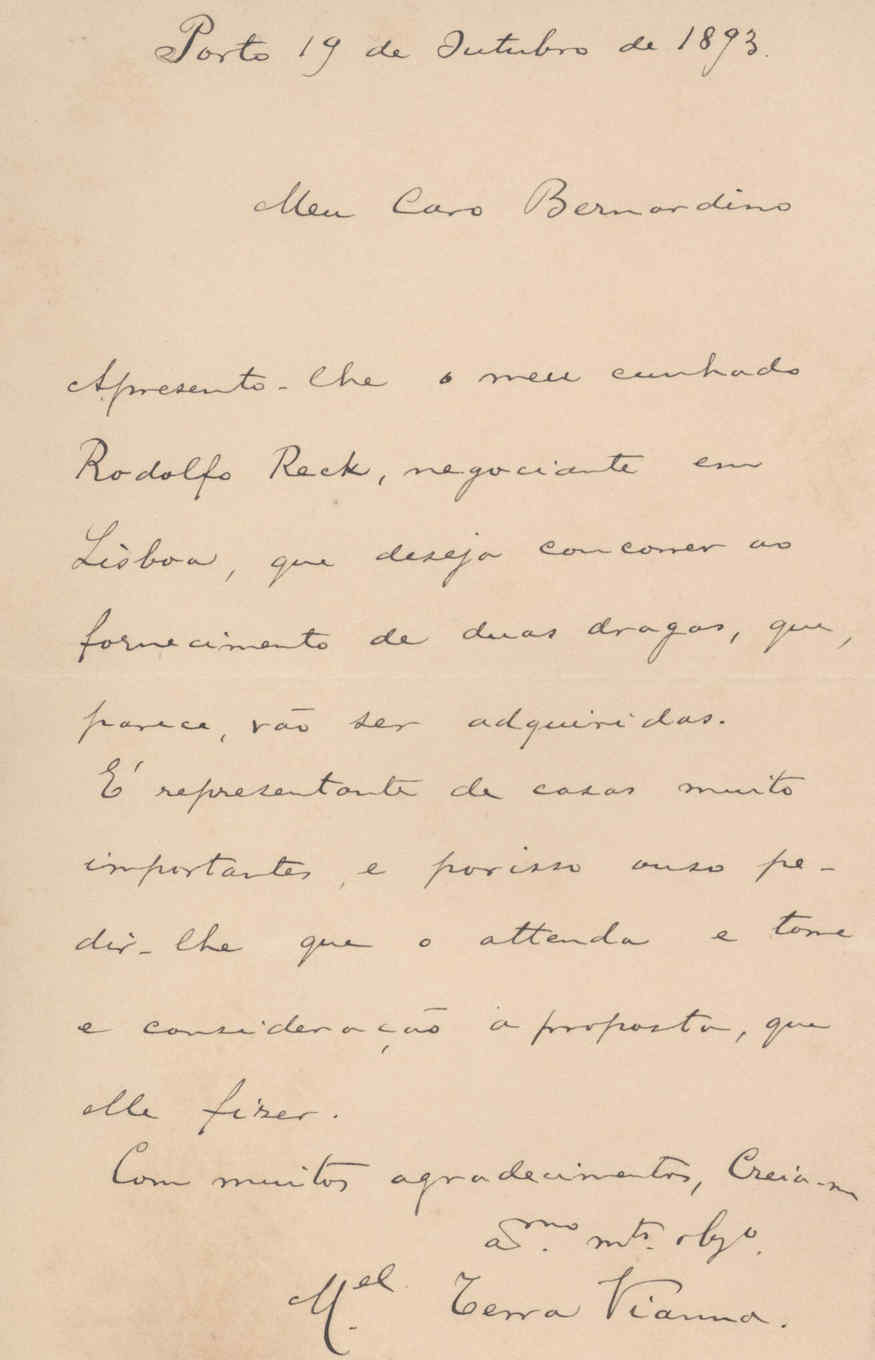 Porto 19 de Outubro de 1893.
Meu Caro Bernardino
Apresento-lhe o meu cunhado
Rodolfo Reck, negociante em
Lisboa, que deseja concorrer ao
fornecimento de duas dragas, que,
parece, vão ser adquiridas.
É representante de casas muito
importantes, e porisso ouso pe-
dir-lhe que o attenda e tome
e consideração a proposta, que
elle fizer.
Com muitos agradecimentos, Creia-m
mto. obgo.
Mel. Terra Vianna.